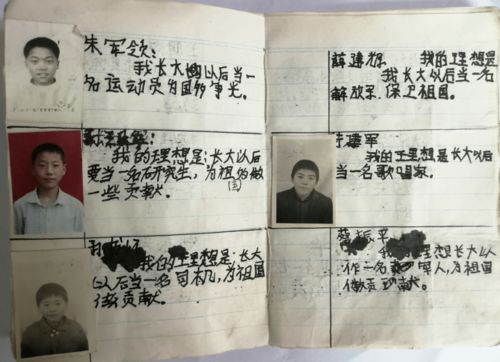 朱军领:
我长大以后当一
名运动员为国争光。
我的理想是:长大以后
要当一名研究生,为祖国做
一些贡献。
我的理想是:长大
以后当一名司机,为祖国
做贡献。
薛建辉 我的理想是
我长大以后当
解放军.保卫祖国。
建军
我的理想是长大以后
当一名歌唱家。
振平
理想长大以
作一名军人,为祖国
做贡献。